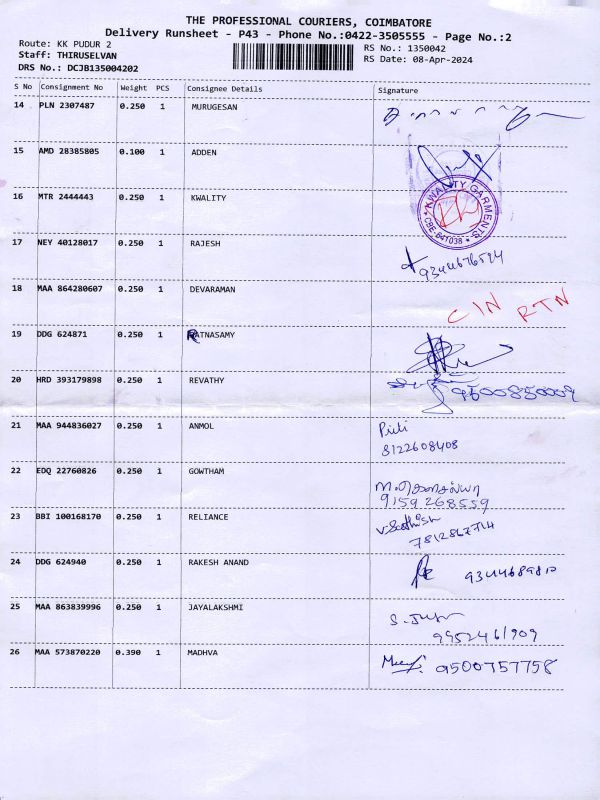 THE PROFESSIONAL COURIERS, COIMBATORE
Delivery Runsheet - P43 - Phone No.:0422-3505555 - Page No.:2
Route: KK PUDUR 2
Staff: THIRUSELVAN
DRS No.: DCJB135004202
RS No.: 1350042
RS Date: 08-Apr-2024
S No Consignment No Weight PCS Consignee Details Signature
14 PLN 2307487 0.250 1 MURUGESAN
15 AMD 28385805 0.100 1 ADDEN
16 MTR 2444443 0.250 1 KWALITY
KWALITY GARMENTS
CBE-641038
17 NEY 40128017 0.250 1 RAJESH
18 MAA 864280607 0.250 1 DEVARAMAN CIN RTN
19 DDG 624871 0.250 1 RATNASAMY
20 HRD 393179898 0.250 1 REVATHY 9500850009
21 MAA 944836027 0.250 1 ANMOL
8122608408
22 EDQ 22760826 0.250 1 GOWTHAM
9159268559
23 BBI 100168170 0.250 1 RELIANCE V.Sathish
24 DDG 624940 0.250 1 RAKESH ANAND
25 MAA 863839996 0.250 1 JAYALAKSHMI
9952461909
26 MAA 573870220 0.390 1 MADHVA 9500757758